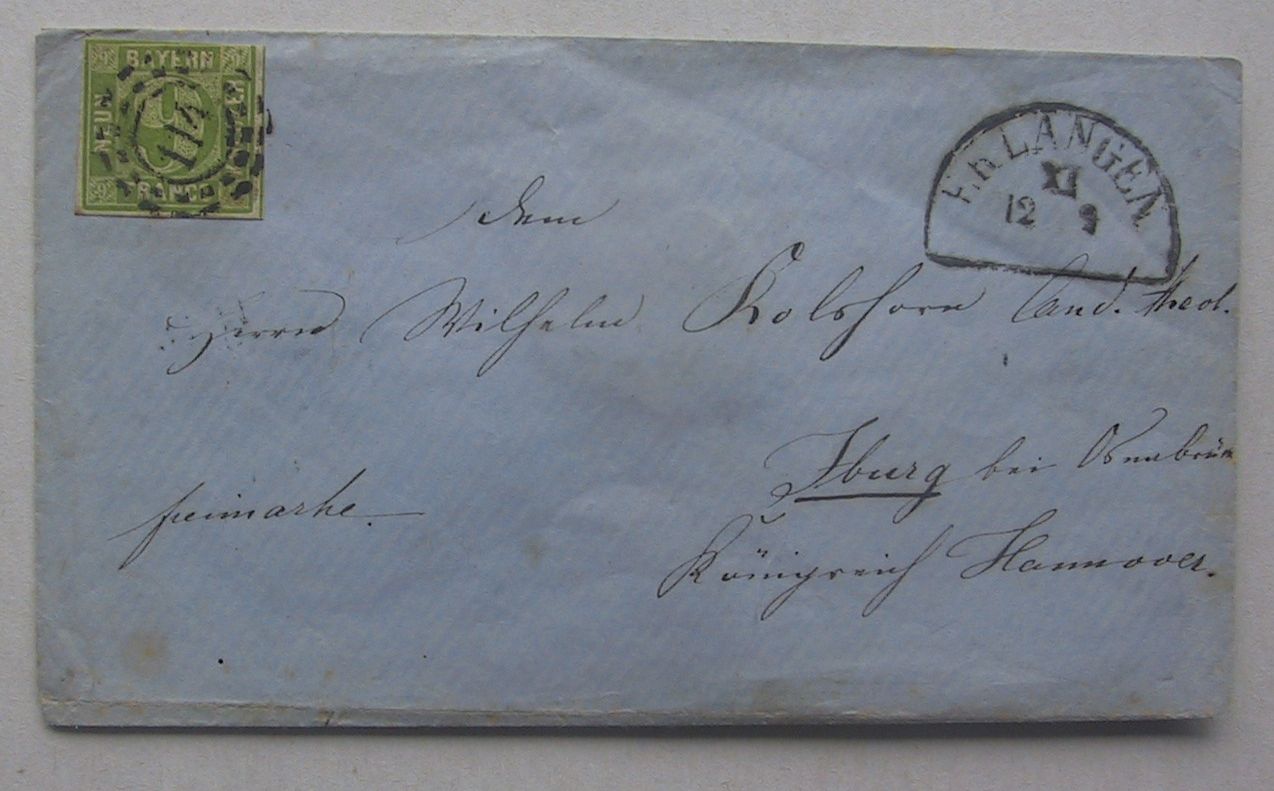 BAYERN
NEUN
FRANCO
9
9
ERLANGEN
XI
12 9
dem
Herrn Wilhelm Kolshorn Cand. theol.
Iburg bei Osnabrück
freimarke
Königreich Hannover.